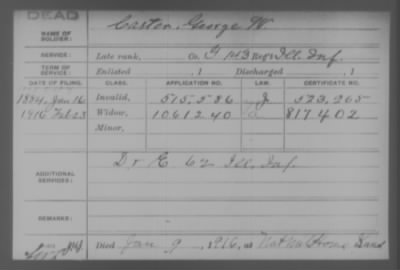 DEAD
NAME OF SOLDIER: Carter, George W.
SERVICE: Late rank, Co. G 143 Reg't Ill. Inf.
TERM OF SERVICE: Enlisted , 1 Discharged , 1
DATE OF FILING. CLASS. APPLICATION NO. LAW. CERTIFICATE NO.
Jan 16 Invalid, 515,586 J 523,265
1916 Feb 23 Widow, 1061240 817402
Minor,
ADDITIONAL SERVICES: D & E 62 Ill. Inf.
REMARKS:
Died Jan 9, 1916, at Nat'l Home